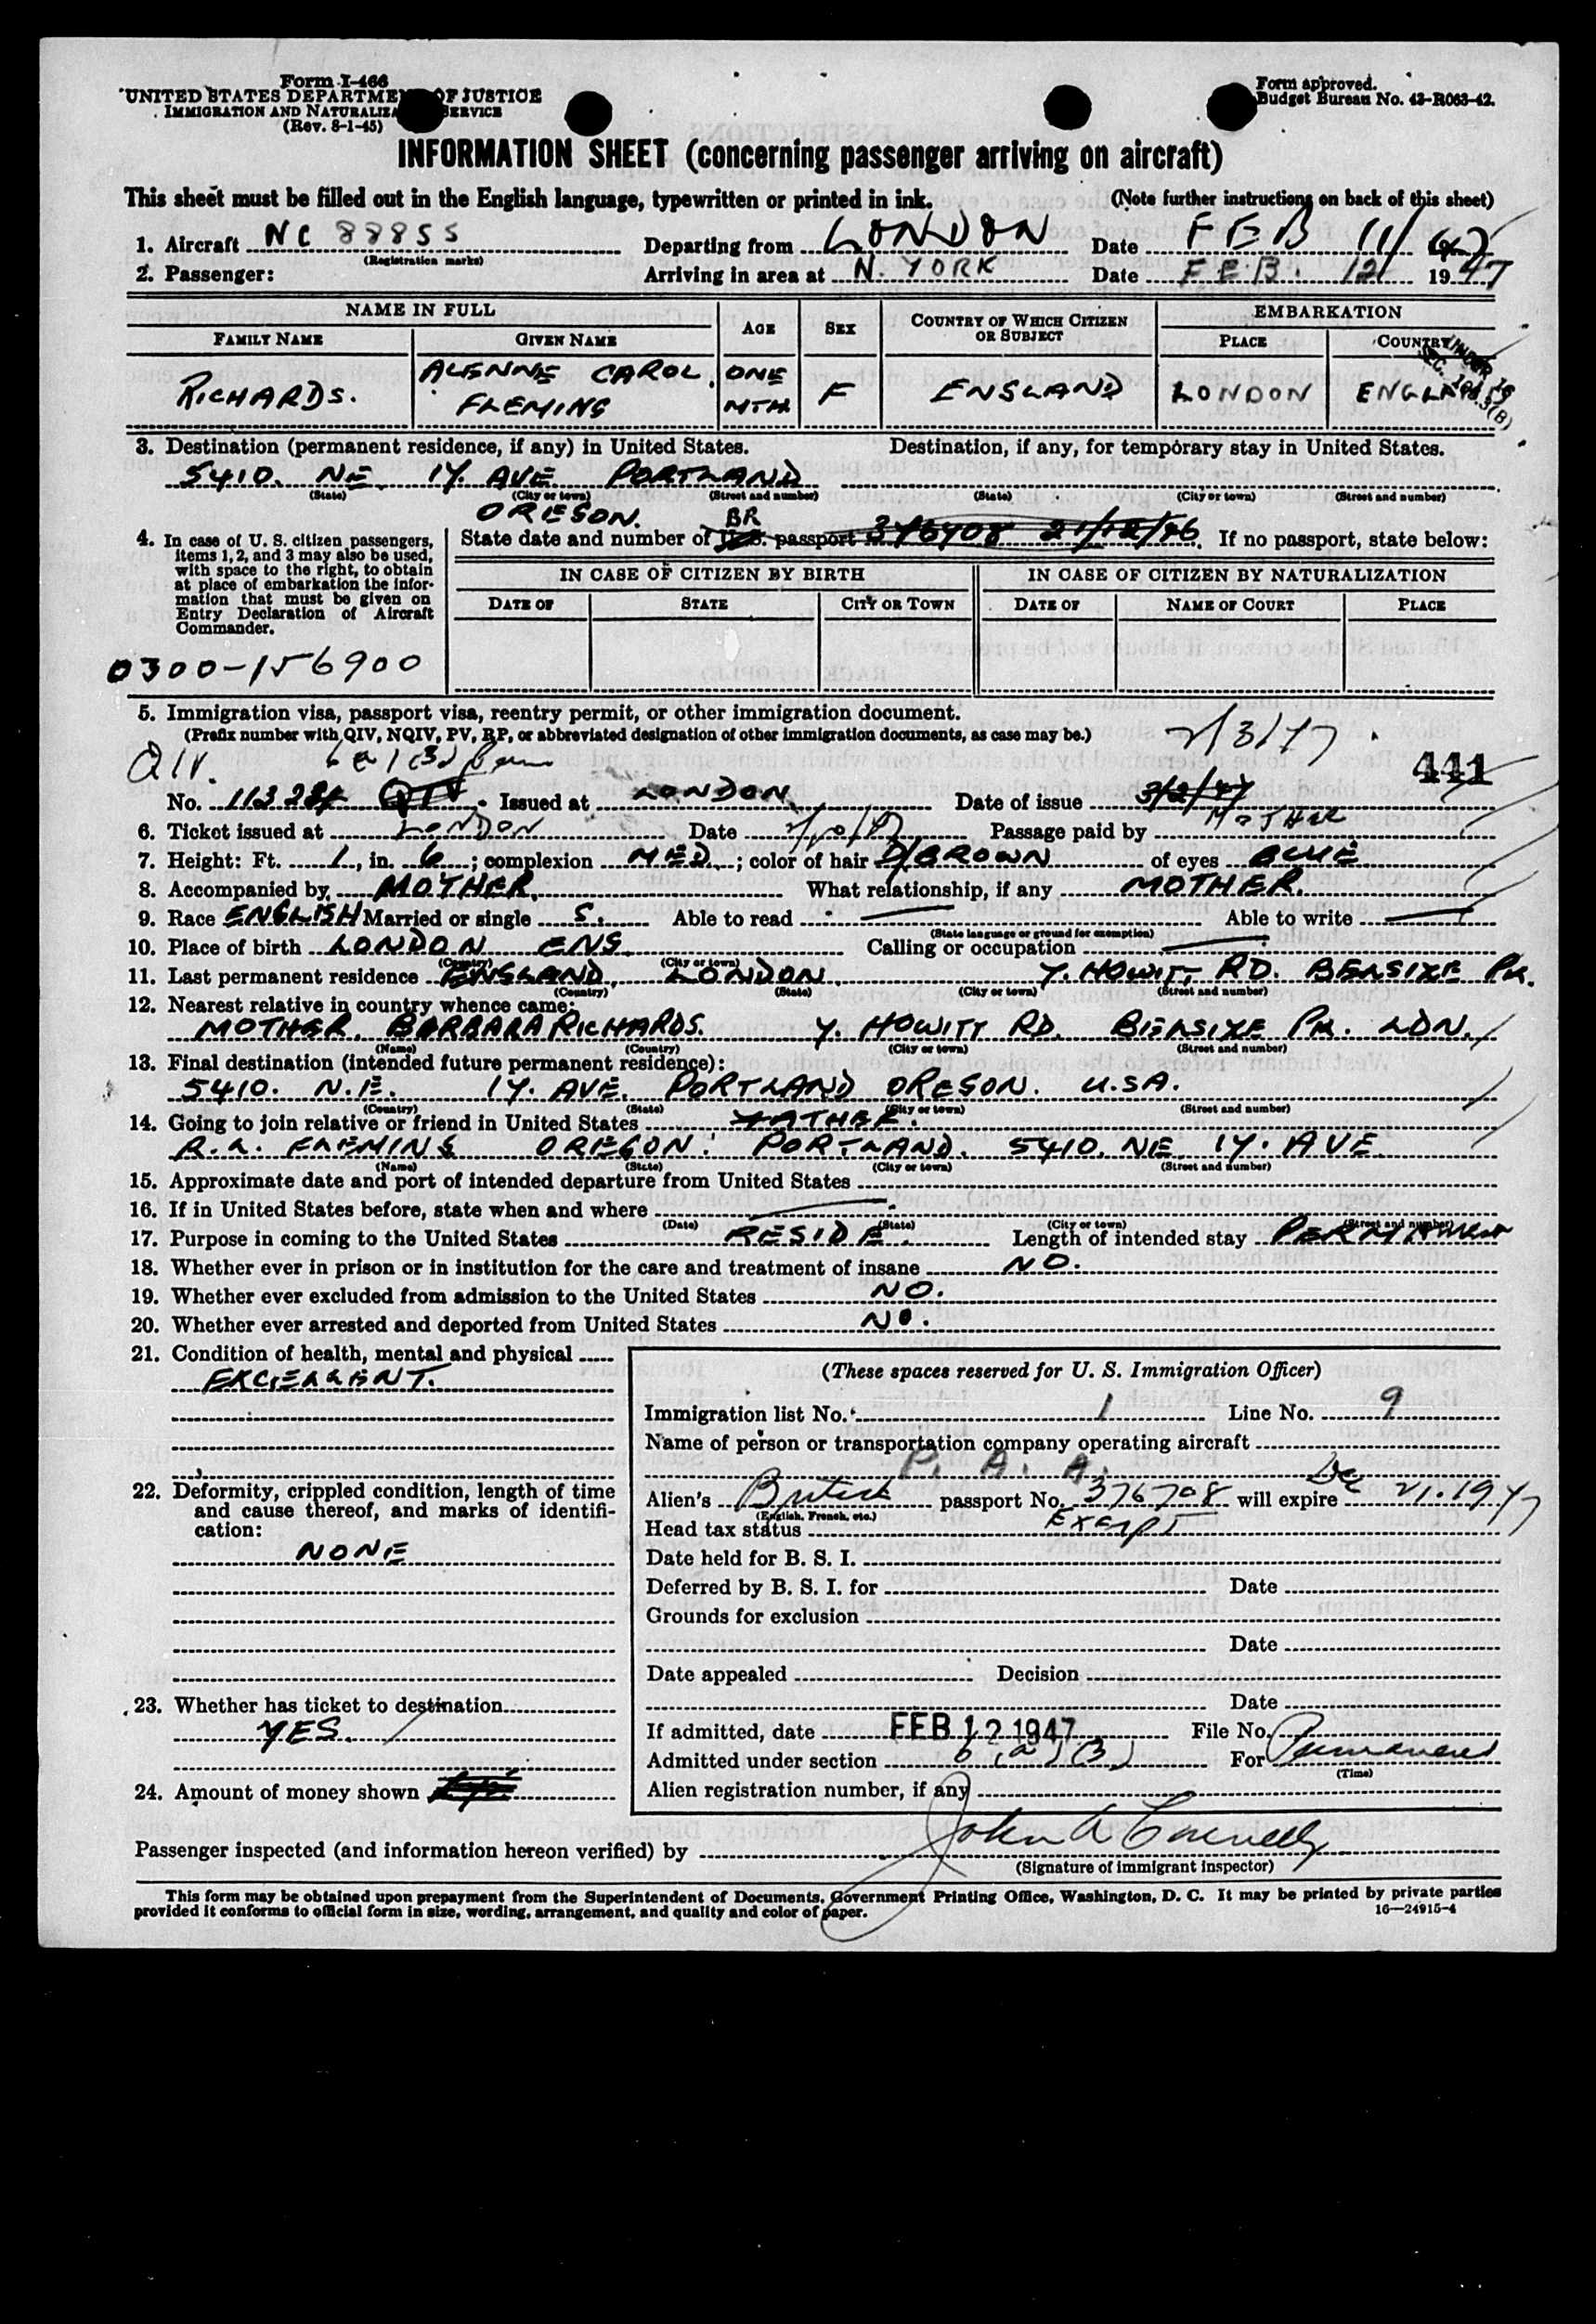 Form I-466
UNITED STATES DEPARTMENT OF JUSTICE
IMMIGRATION AND NATURALIZATION SERVICE
(Rev. 8-1-45)
Form approved.
Budget Bureau No. 43-R063-42.
INFORMATION SHEET (concerning passenger arriving on aircraft)
This sheet must be filled out in the English language, typewritten or printed in ink. (Note further instructions on back of this sheet)
1. Aircraft NC 88855 Departing from LONDON Date FEB 11/47
(Registration marks)
2. Passenger: Arriving in area at N. YORK Date FEB. 12/ 1947
NAME IN FULL AGE SEX COUNTRY OF WHICH CITIZEN OR SUBJECT EMBARKATION
FAMILY NAME GIVEN NAME PLACE COUNTRY
RICHARDS. ALENNE CAROL FLEMING ONE MTH F ENGLAND LONDON ENGLAND
3. Destination (permanent residence, if any) in United States. Destination, if any, for temporary stay in United States.
5410. NE. 17. AVE PORTLAND
(State) (City or town) (Street and number) (State) (City or town) (Street and number)
OREGON.
4. In case of U. S. citizen passengers, items 1, 2, and 3 may also be used, with space to the right, to obtain at place of embarkation the information that must be given on Entry Declaration of Aircraft Commander.
State date and number of U.S. BR passport 376708 21/12/46. If no passport, state below:
IN CASE OF CITIZEN BY BIRTH IN CASE OF CITIZEN BY NATURALIZATION
DATE OF STATE CITY OR TOWN DATE OF NAME OF COURT PLACE
0300-156900
5. Immigration visa, passport visa, reentry permit, or other immigration document.
(Prefix number with QIV, NQIV, PV, RP, or abbreviated designation of other immigration documents, as case may be.)
2/3/47
441
QIV. 6a(3)
No. 11328 QIV. Issued at LONDON Date of issue 3/2/47
6. Ticket issued at LONDON Date Passage paid by MOTHER
7. Height: Ft. 1, in. 6; complexion MED; color of hair D/BROWN of eyes BLUE
8. Accompanied by MOTHER. What relationship, if any MOTHER.
9. Race ENGLISH Married or single S. Able to read — Able to write —
(State language or ground for exemption)
10. Place of birth LONDON ENG. Calling or occupation —
(Country) (City or town)
11. Last permanent residence ENGLAND, LONDON, 7. HOWITT RD. BELSIZE PK.
(Country) (State) (City or town) (Street and number)
12. Nearest relative in country whence came:
MOTHER. BARBARA RICHARDS. 7. HOWITT RD. BELSIZE PK. LDN.
(Name) (Country) (City or town) (Street and number)
13. Final destination (intended future permanent residence):
5410. N.E. 17. AVE. PORTLAND OREGON. U.S.A.
(Country) (State) (City or town) (Street and number)
14. Going to join relative or friend in United States FATHER.
R.L. FLEMING OREGON. PORTLAND. 5410. NE. 17. AVE.
(Name) (State) (City or town) (Street and number)
15. Approximate date and port of intended departure from United States
16. If in United States before, state when and where —
(Date) (State) (City or town) (Street and number)
17. Purpose in coming to the United States RESIDE. Length of intended stay PERMANENT
18. Whether ever in prison or in institution for the care and treatment of insane NO.
19. Whether ever excluded from admission to the United States NO.
20. Whether ever arrested and deported from United States NO.
21. Condition of health, mental and physical
EXCELLENT.
22. Deformity, crippled condition, length of time and cause thereof, and marks of identification:
NONE
23. Whether has ticket to destination
YES.
24. Amount of money shown
(These spaces reserved for U. S. Immigration Officer)
Immigration list No. 1 Line No. 9
Name of person or transportation company operating aircraft
P. A. A.
Alien's British passport No. 376708 will expire Dec 21. 1947
(English, French, etc.)
Head tax status Exempt
Date held for B. S. I.
Deferred by B. S. I. for Date
Grounds for exclusion
Date
Date appealed Decision
Date
If admitted, date FEB 12 1947 File No.
Admitted under section 6 (a) (3) For Permanent
(Time)
Alien registration number, if any
Passenger inspected (and information hereon verified) by John A
(Signature of immigrant inspector)
This form may be obtained upon prepayment from the Superintendent of Documents, Government Printing Office, Washington, D. C. It may be printed by private parties
provided it conforms to official form in size, wording, arrangement, and quality and color of paper. 16—24915-4